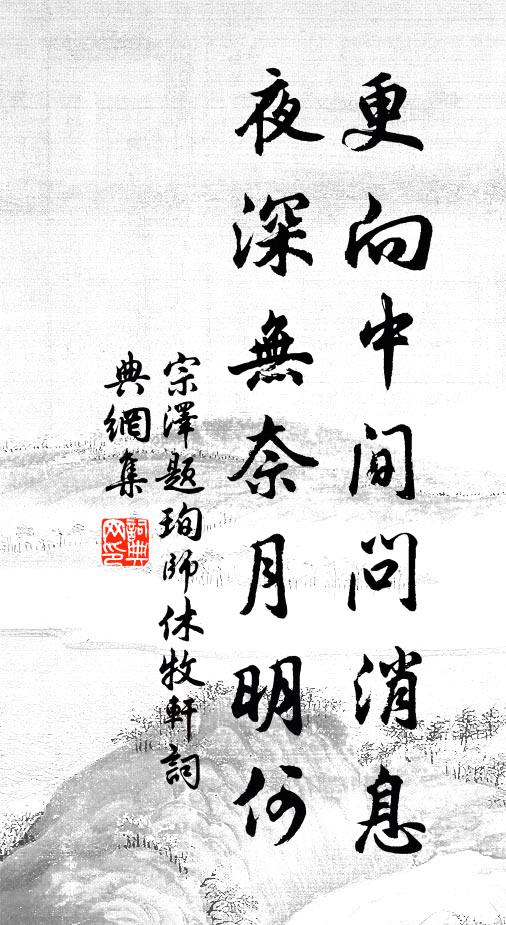 更向中間問消息
夜深無奈月明何
宗澤題珣師休牧軒詞
典網集
詞典網印